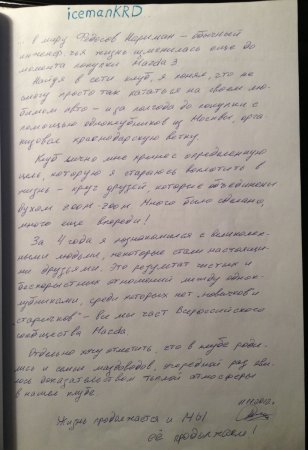 icemanKRD
... в миру Федосов Нариман - обычный
инженер, чья жизнь изменилась еще до
момента покупки Mazda 3
Найдя в сети клуб, я понял, что не
смогу просто так кататься на своем лю-
бимом авто - и за полгода до покупки с
помощью одноклубников из Москвы, орга-
низовал краснодарскую ветку.
Клуб лично мне принес определенную
цель, которую я стараюсь воплотить в
жизнь - круг друзей, которые объединены
духом zoom-zoom. Много было сделано,
много еще впереди!
За 4 года я познакомился с великолеп-
ными людьми, некоторые стали настоящи-
ми друзьями. Это результат чистых и
бескорыстных отношений между однок-
лубниками, среди которых нет "новичков" и
"старичков" - все мы часть Всероссийского
сообщества Mazda
Отдельно хочу отметить, что в клубе роди-
лись и семьи маздоводов, очередной раз яви-
лось доказательством теплой атмосферы
в нашем клубе.
Жизнь продолжается и МЫ
её продолжаем!